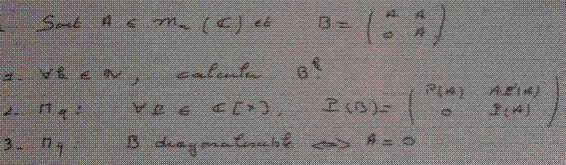 Soit A ∈ M_n (C) et B = ( A A ; 0 A )
1. ∀k ∈ N, calculer B^k.
2. Mq : ∀P ∈ C[X], P(B) = ( P(A) AP'(A) ; 0 P(A) )
3. Mq : B diagonalisable <=> A = 0